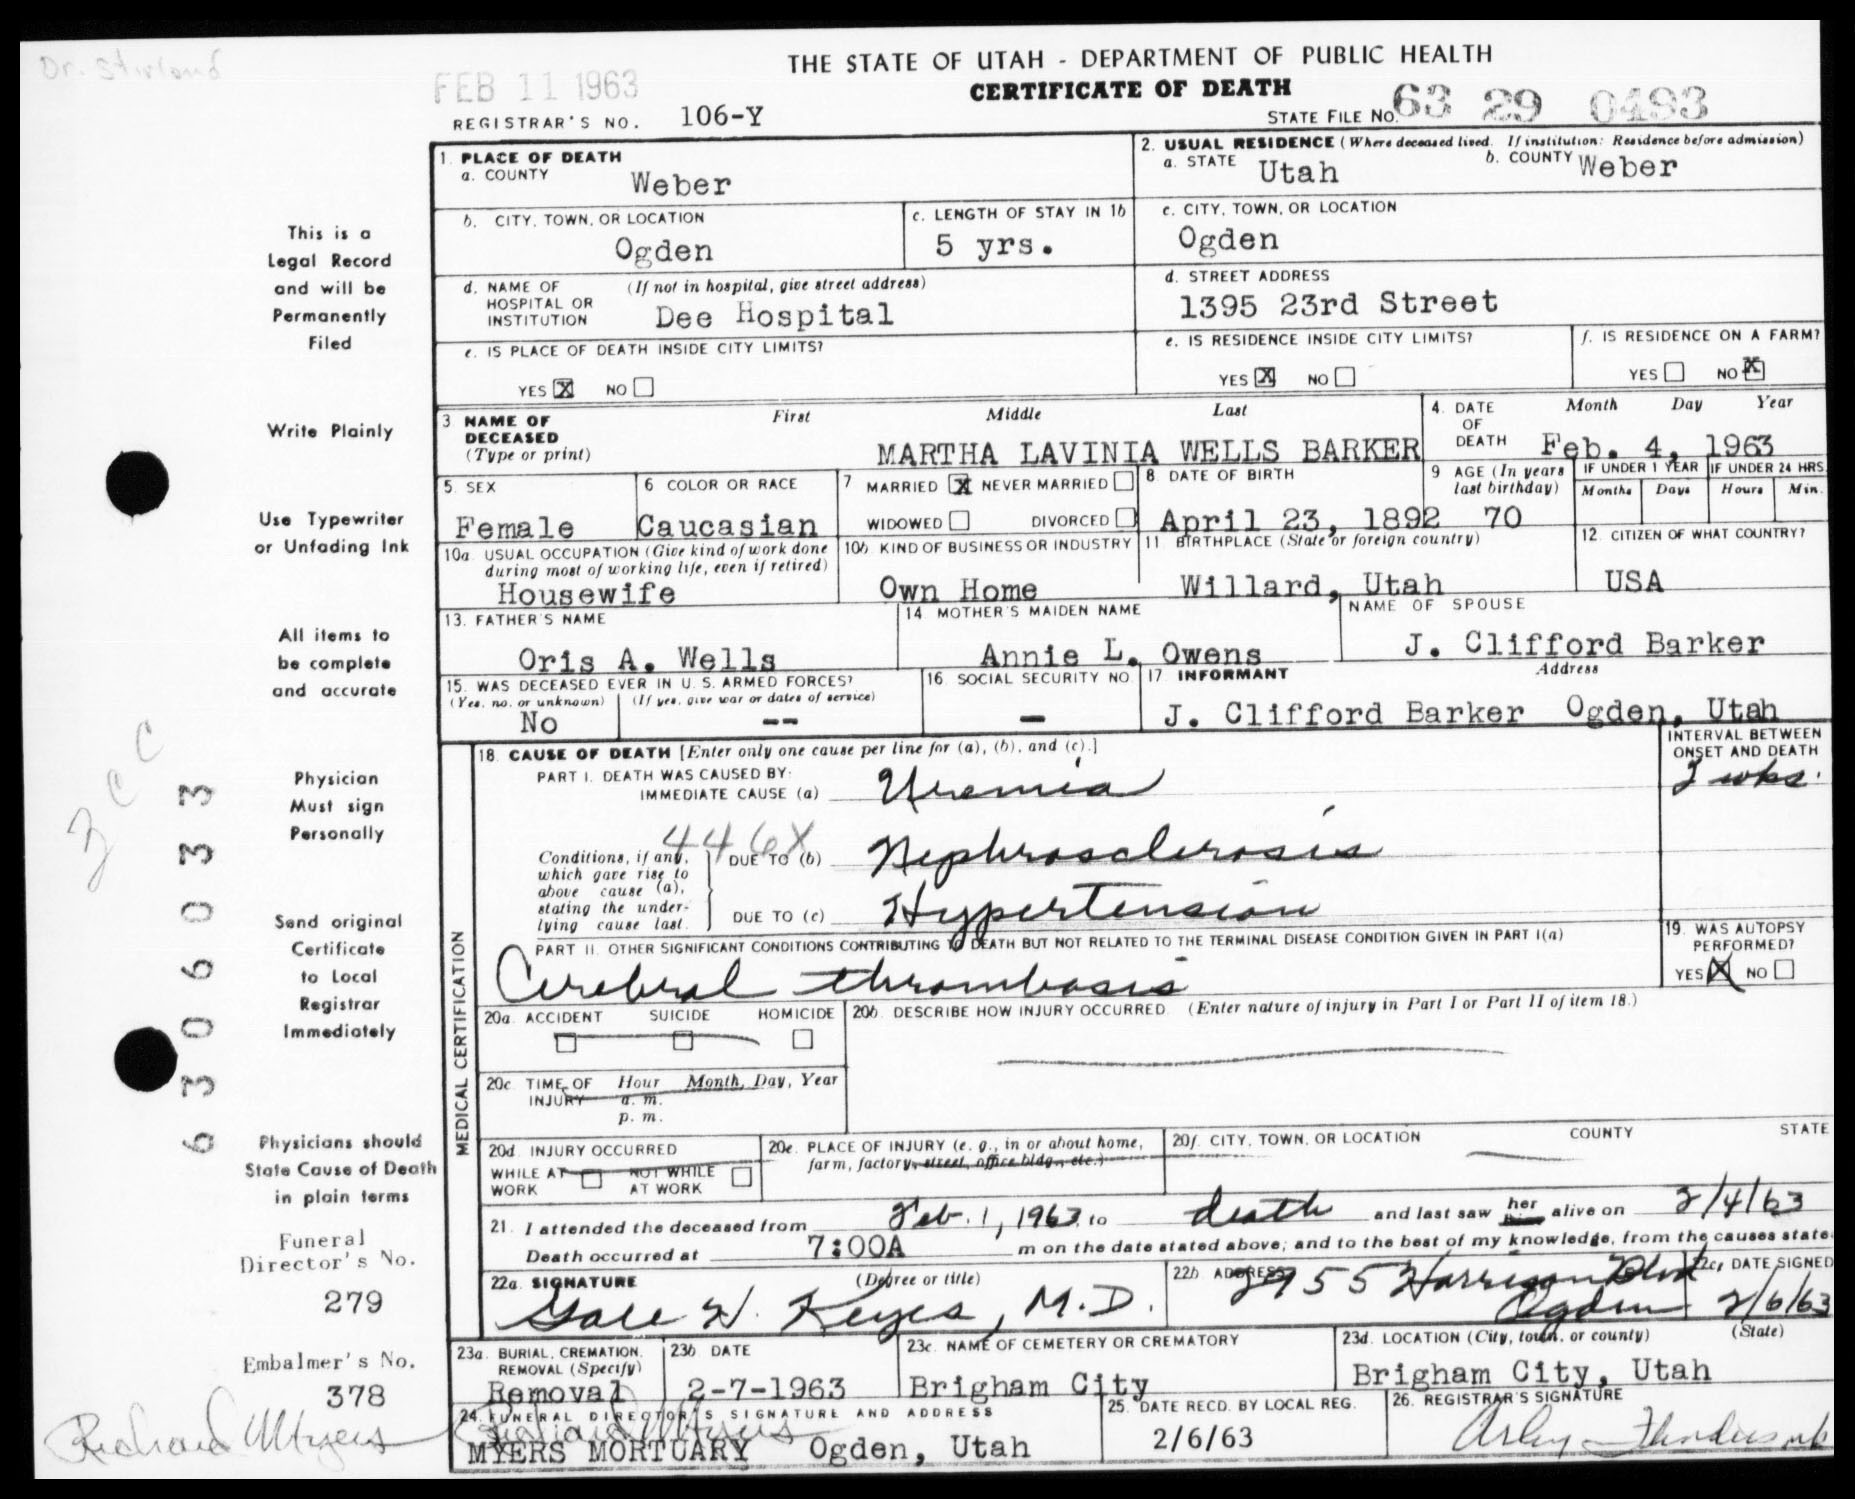 Dr. Stirland
THE STATE OF UTAH - DEPARTMENT OF PUBLIC HEALTH
FEB 11 1963
CERTIFICATE OF DEATH
REGISTRAR'S NO. 106-Y
STATE FILE NO. 63 29 0493
1. PLACE OF DEATH
a. COUNTY Weber
2. USUAL RESIDENCE (Where deceased lived. If institution: Residence before admission)
a. STATE Utah b. COUNTY Weber
b. CITY, TOWN, OR LOCATION
Ogden
c. LENGTH OF STAY IN 1b
5 yrs.
c. CITY, TOWN, OR LOCATION
Ogden
d. NAME OF HOSPITAL OR INSTITUTION (If not in hospital, give street address)
Dee Hospital
d. STREET ADDRESS
1395 23rd Street
e. IS PLACE OF DEATH INSIDE CITY LIMITS?
YES X NO
e. IS RESIDENCE INSIDE CITY LIMITS?
YES X NO
f. IS RESIDENCE ON A FARM?
YES NO X
3 NAME OF DECEASED (Type or print)
First Middle Last
MARTHA LAVINIA WELLS BARKER
4. DATE OF DEATH
Month Day Year
Feb. 4, 1963
5. SEX
Female
6 COLOR OR RACE
Caucasian
7 MARRIED X NEVER MARRIED
WIDOWED DIVORCED
8 DATE OF BIRTH
April 23, 1892
9 AGE (In years last birthday)
70
IF UNDER 1 YEAR
Months Days
IF UNDER 24 HRS.
Hours Min.
10a. USUAL OCCUPATION (Give kind of work done during most of working life, even if retired)
Housewife
10b. KIND OF BUSINESS OR INDUSTRY
Own Home
11 BIRTHPLACE (State or foreign country)
Willard, Utah
12. CITIZEN OF WHAT COUNTRY?
USA
13. FATHER'S NAME
Oris A. Wells
14 MOTHER'S MAIDEN NAME
Annie L. Owens
NAME OF SPOUSE
J. Clifford Barker
15. WAS DECEASED EVER IN U. S. ARMED FORCES?
(Yes, no, or unknown) (If yes, give war or dates of service)
No --
16. SOCIAL SECURITY NO.
-
17 INFORMANT Address
J. Clifford Barker Ogden, Utah
18. CAUSE OF DEATH [Enter only one cause per line for (a), (b), and (c).]
INTERVAL BETWEEN ONSET AND DEATH
PART I. DEATH WAS CAUSED BY:
IMMEDIATE CAUSE (a) Uremia
2 wks.
446X
Conditions, if any, which gave rise to above cause (a), stating the underlying cause last.
DUE TO (b) Nephrosclerosis
DUE TO (c) Hypertension
PART II. OTHER SIGNIFICANT CONDITIONS CONTRIBUTING TO DEATH BUT NOT RELATED TO THE TERMINAL DISEASE CONDITION GIVEN IN PART I(a)
Cerebral thrombosis
19. WAS AUTOPSY PERFORMED?
YES X NO
20a. ACCIDENT SUICIDE HOMICIDE
20b. DESCRIBE HOW INJURY OCCURRED. (Enter nature of injury in Part I or Part II of item 18.)
20c. TIME OF INJURY Hour Month, Day, Year
a. m.
p. m.
20d. INJURY OCCURRED
WHILE AT WORK NOT WHILE AT WORK
20e. PLACE OF INJURY (e. g., in or about home, farm, factory, street, office bldg., etc.)
20f. CITY, TOWN, OR LOCATION COUNTY STATE
21. I attended the deceased from Feb. 1, 1963 to death and last saw her him alive on 2/4/63
Death occurred at 7:00A m on the date stated above; and to the best of my knowledge, from the causes state
22a. SIGNATURE (Degree or title)
Gale W. Keyes, M.D.
22b ADDRESS
2955 Harrison Blvd
Ogden
22c. DATE SIGNED
2/6/63
23a. BURIAL, CREMATION, REMOVAL (Specify)
Removal
23b DATE
2-7-1963
23c. NAME OF CEMETERY OR CREMATORY
Brigham City
23d. LOCATION (City, town, or county) (State)
Brigham City, Utah
24. FUNERAL DIRECTOR'S SIGNATURE AND ADDRESS
Richard Myers
MYERS MORTUARY Ogden, Utah
25. DATE RECD. BY LOCAL REG.
2/6/63
26. REGISTRAR'S SIGNATURE
MEDICAL CERTIFICATION
This is a
Legal Record
and will be
Permanently
Filed
Write Plainly
Use Typewriter
or Unfading Ink
All items to
be complete
and accurate
Physician
Must sign
Personally
Send original
Certificate
to Local
Registrar
Immediately
Physicians should
State Cause of Death
in plain terms
Funeral
Director's No.
279
Embalmer's No.
378
Richard Myers
6 3 0 6 0 3 3